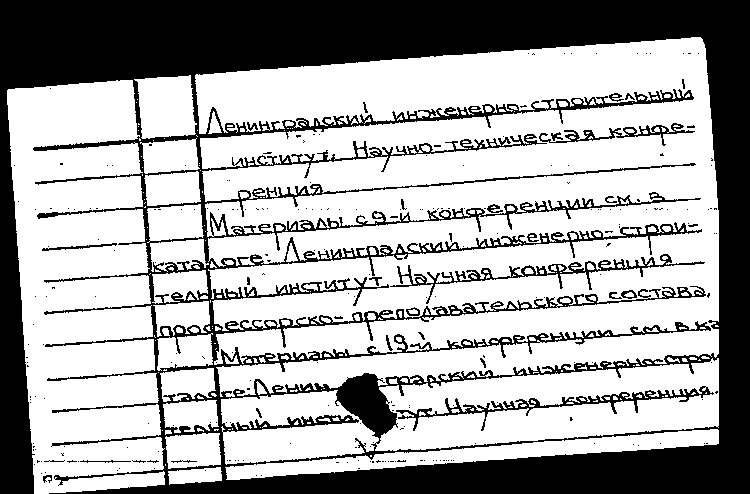 Ленинградский инженерно-строительный
институт. Научно-техническая конфе-
ренция.
Материалы с 9-й конференции см. в
каталоге: Ленинградский инженерно-строи-
тельный институт Научная конференция
профессорско-преподавательского состава.
Материалы с 19-й конференции см. в ка
талоге: Ленин градский инженерно-строи
тельный инсти тут. Научная конференция.